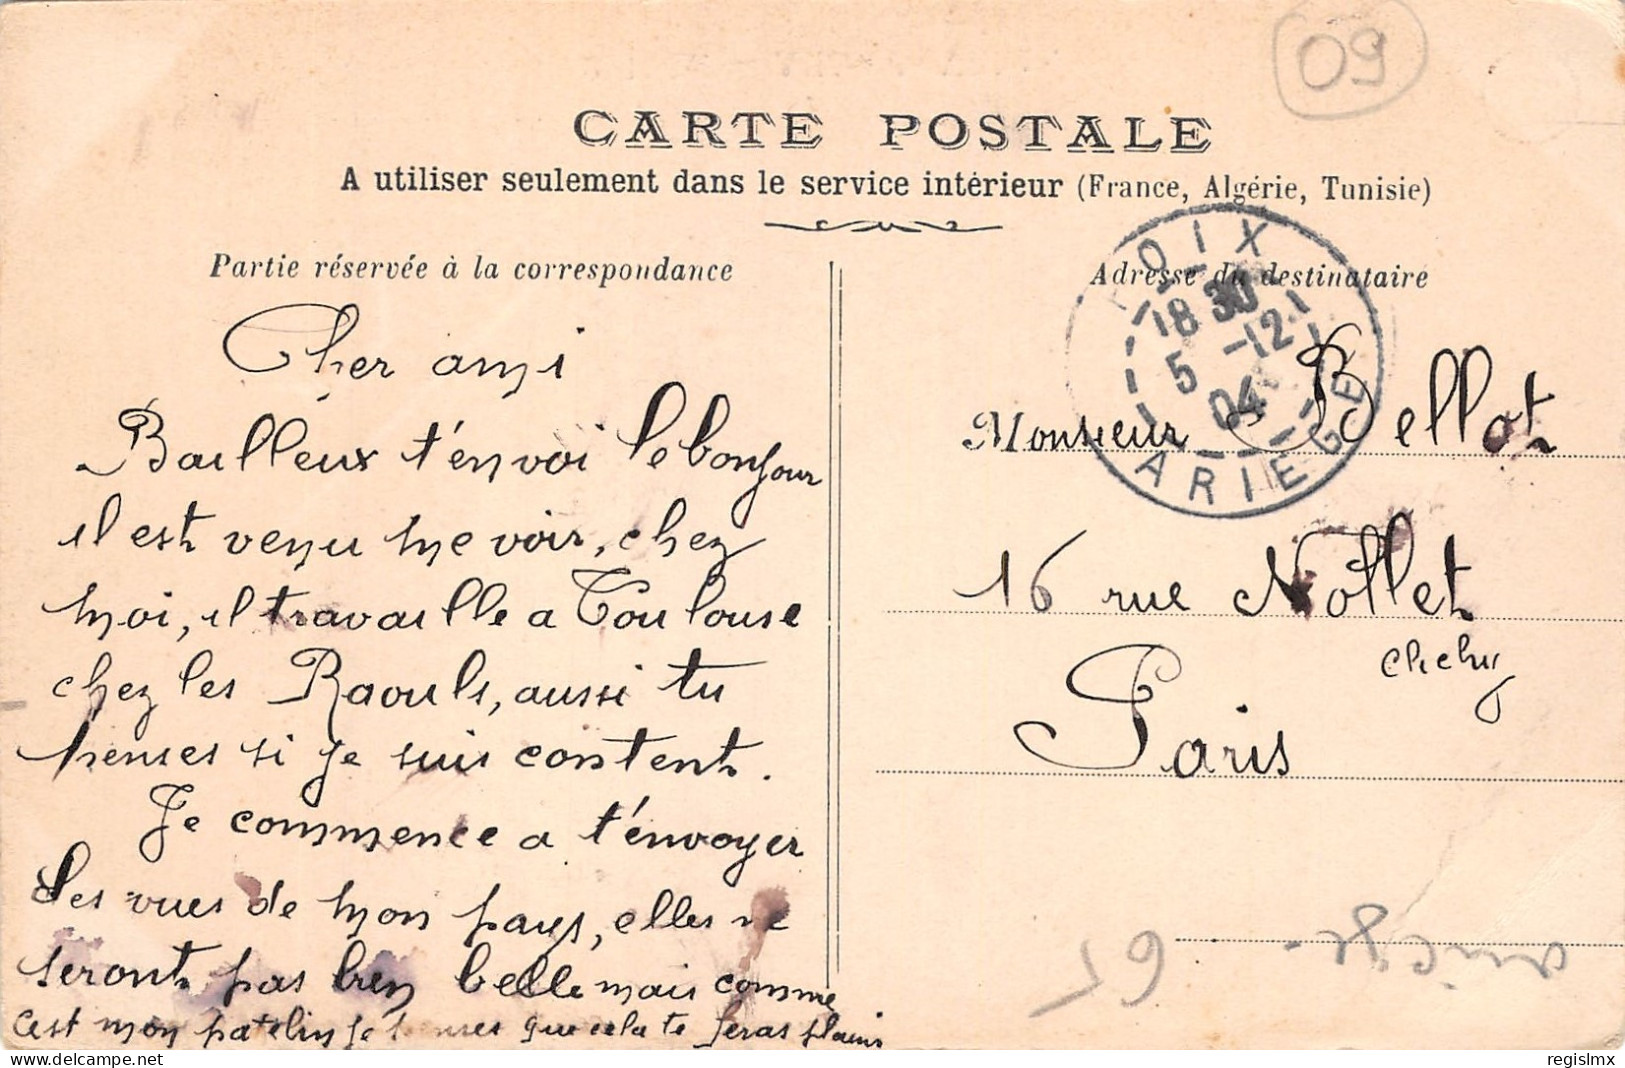 09
CARTE POSTALE
A utiliser seulement dans le service intérieur (France, Algérie, Tunisie)
Partie réservée à la correspondance
Adresse du destinataire
FOIX
18 30
5 -12
04
ARIEGE
Cher ami
Bailleux t'envoi le bonjour
il est venu me voir, chez
moi, il travaille a Toulouse
chez les Raouls, aussi tu
penses si je suis content.
Je commence a t'envoyer
des vues de mon pays, elles ne
seront pas bien belle mais comme
c'est mon patelin je penses que cela te feras plaisir
Monsieur Bellot
16 rue Nollet
Clichy
Paris
59
regislmx
www.delcampe.net